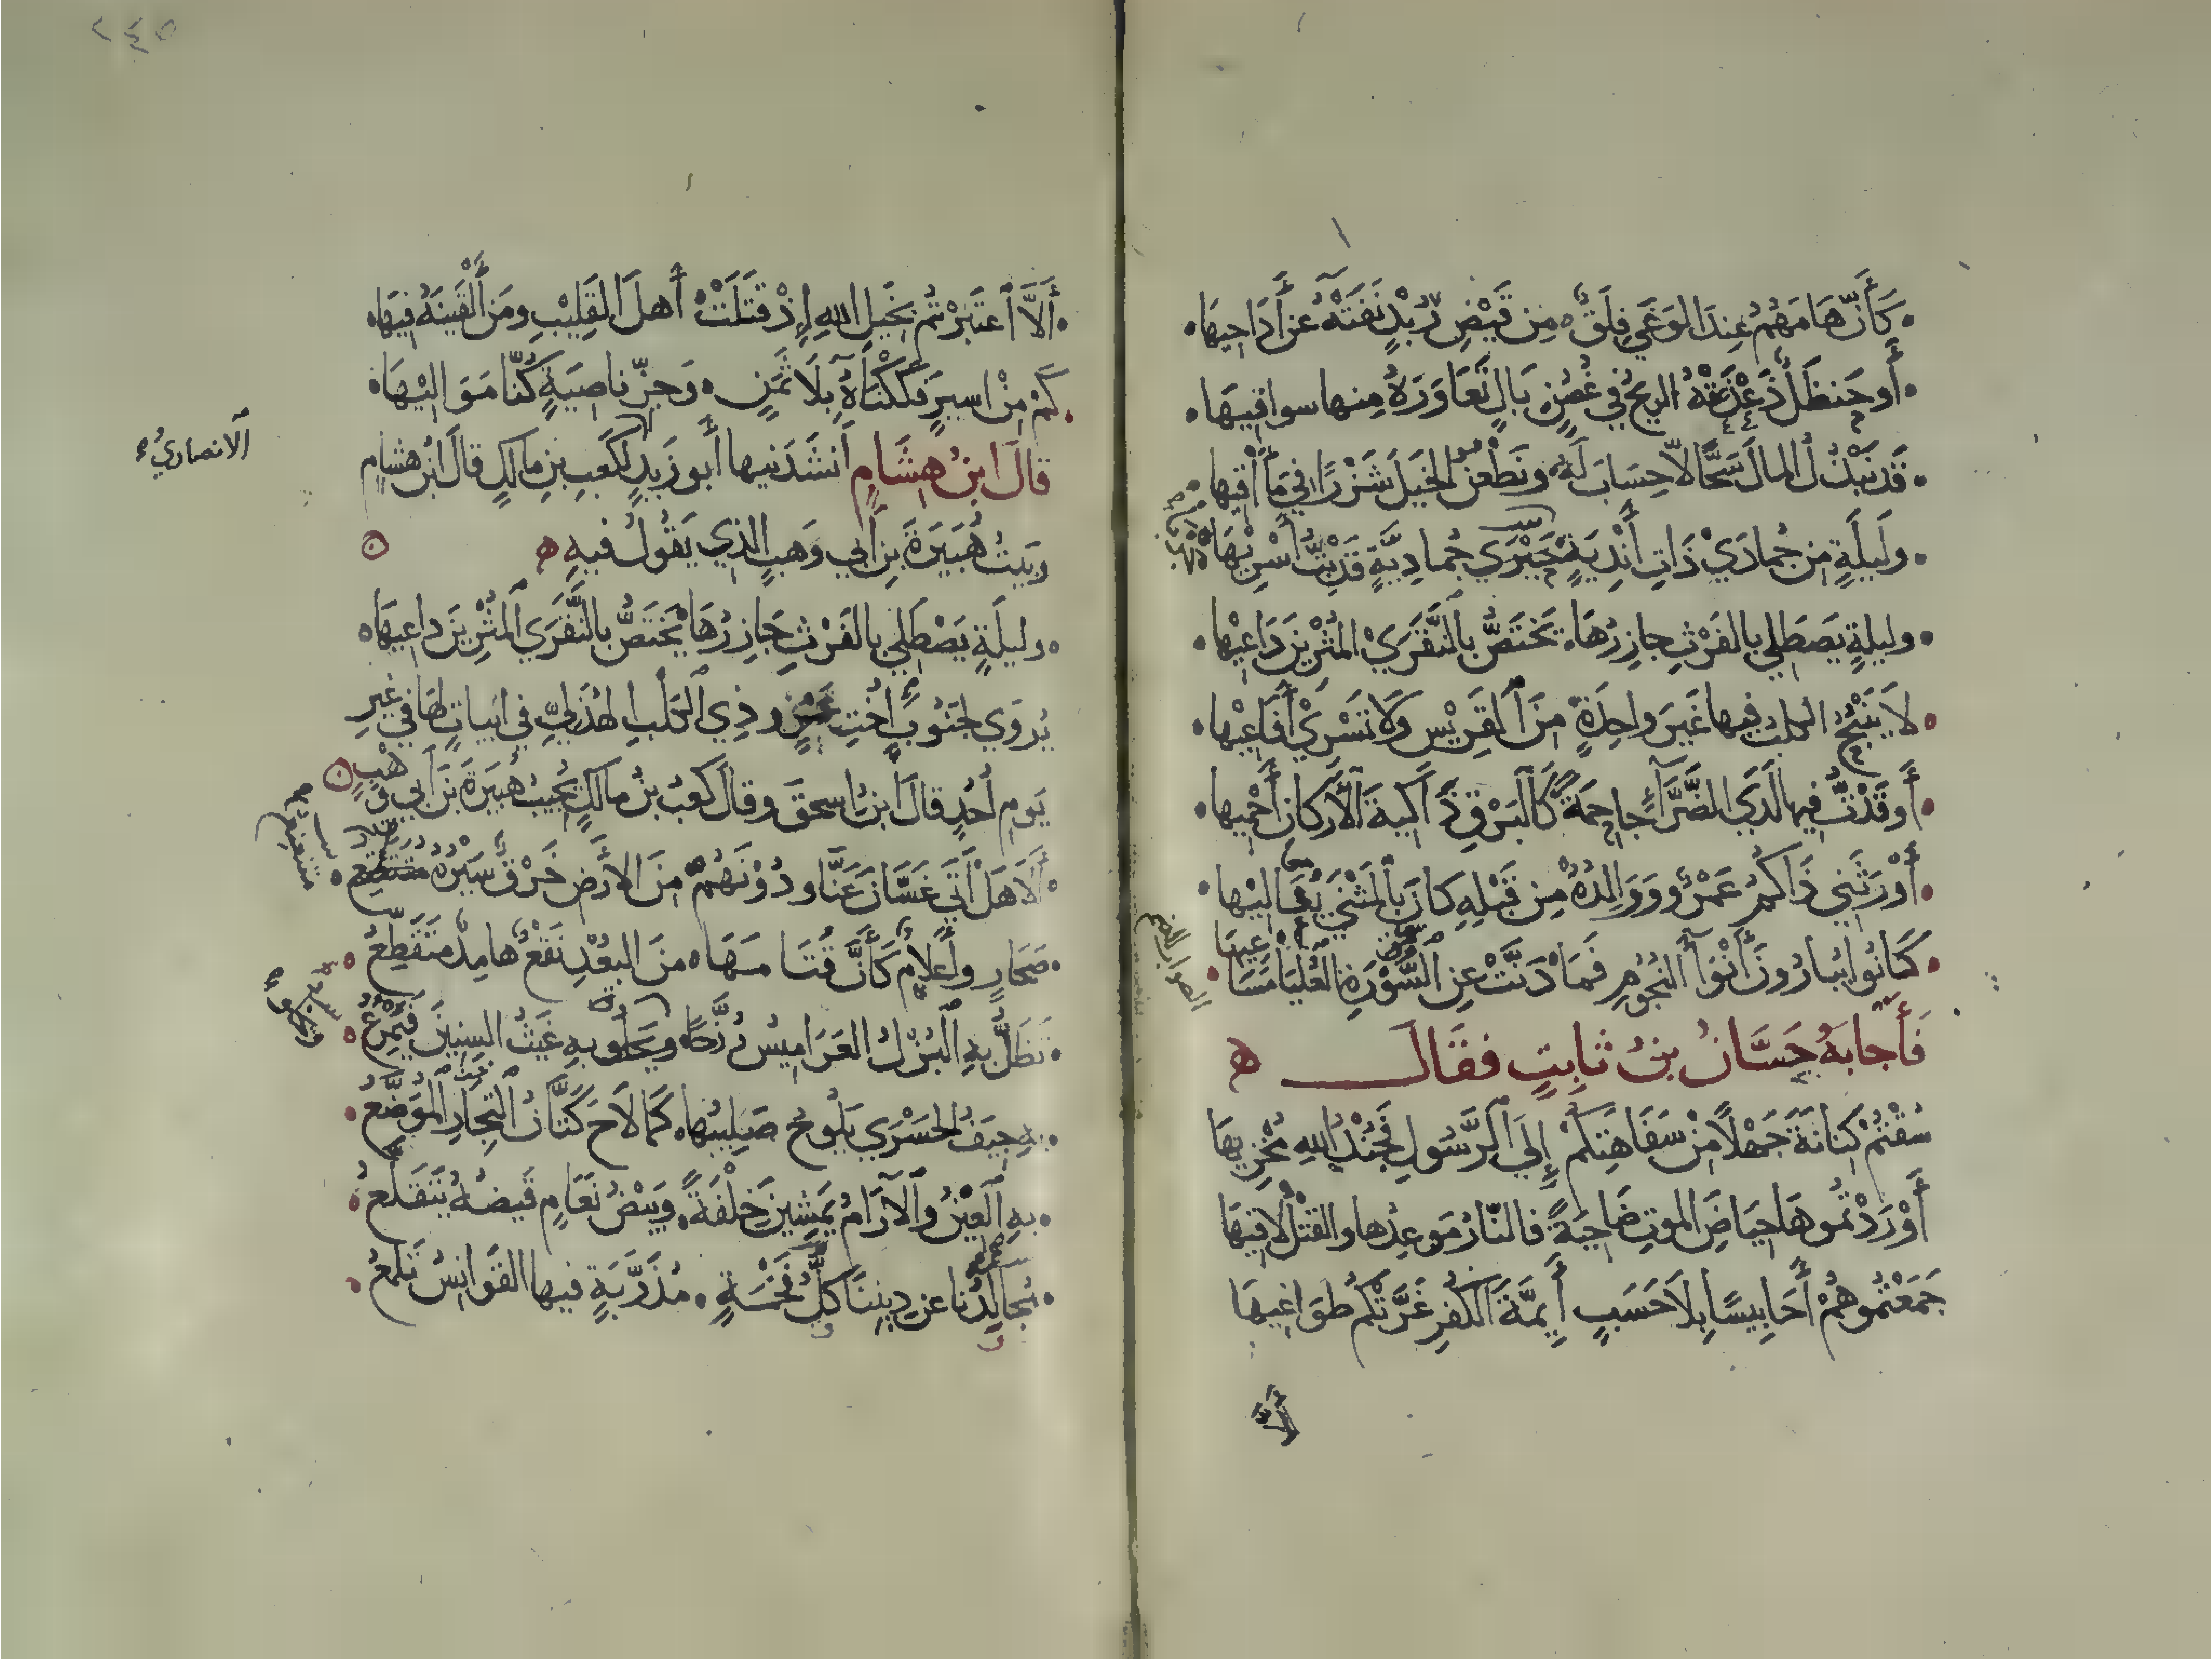 كَأَنَّ هَامَهُمُ عِندَ الوَغَي فِلَقٌ مِن قَيْضِ رُبْدٍ نَفَتْهُ عَن أَدَاحِيهَا
أَو حَنظَلٌ ذَعْذَعَتْهُ الريحُ في غُصُنٍ بَالٍ تَعَاوَرَهُ مِنها سواقيهَا
قَد نَبْذُلُ المالَ سَحًّا لا حِسَابَ لَهُ ونَطْعُنُ الخيلَ شَزْرًا في مَآقيها
ولَيلَةٍ مِن جُمادَيْ ذَاتِ أَنْدِيَةٍ جَرْبَي جُمادِيَّةٍ قَد بِتُّ أَسْرِيهَا
وليلةٍ يَصْطَلِي بالفَرْثِ جازِرُهَا يَختَصُّ بالنَّقَرَيْ المُثْرِينَ دَاعِيْها
لَا يَنْبَحُ الكلبُ فيها غَيرَ واحِدَةٍ مِنَ القَرِيْسِ وَلَا تَسْرَيْ أَفَاعِيْها
أَوقَدْتُ فيها لَذي الضَّرَّآءِ جَاحِمَةً كَالبَرْقِ ذَاكِيَةَ الأَركانِ أَحْمِيها
أَوْرَثَنِي ذَاكُمُ عَمْرٌو وَوَالِدُهُ مِن قَبْلِهِ كَانَ بالمَثْنَي يُغَاليْها
كَانُوا يُبارُونَ أَنْوَآءَ النُجُومِ فَمَا دَنَّتْ عنِ السَّوْرَةِ العُليَا مَسَاعِيهَا
الصواب بالضم
فَأَجابَهُ حَسَّانُ بنُ ثَابِتٍ فقَالَ
سُقْتُمْ كِنَانَةَ جَهْلًا مِنْ سَفَاهَتِكُمْ إِلَيَ الرَّسُولِ فَجُنْدُ اللهِ مُخْزِيهَا
أَوْرَدْتُموهَا حِيَاضَ الموتِ ضَاحِيَةً فالنّارُ مَوعِدُها والقَتْلُ لاقِيهَا
جَمَعْتُمُوهُمْ أَحَابِيسًا بِلَا حَسَبٍ أَئِمَّةَ الكُفرِ غَرَّتْكُمْ طَوَاغِيهَا
أَلَّا
٢٤٥
أَلَّا اعتَبَرْتُم بخَيلِ اللهِ إِذْ قَتَلَتْ أَهلَ القَلِيْبِ ومَن أَلْقَينَهُ فيهَا
كَمْ مِنْ اسيرٍ فَكَكْنَاهُ بِلَا ثَمَنٍ وَجزِّ ناصِيَةٍ كُنّا مَوَاليْهَا
قالَ ابنُ هِشَامٍ أَنشَدَنيها أَبو زَيدٍ لكَعبِ بنِ مالكٍ قالَ ابنُ هشامٍ
الانصاريُّ
وبَيتُ هُبَيرَةَ بنِ أَبي وَهبٍ الذي يَقُولُ فيهِ
وليلَةٍ يَصْطَلِي بالفَرْثِ جَازِرُهَا يَختَصُّ بالنَّقَرَي المُثْرِينَ داعيهَا
يُروَي لجَنُوبَ أُختِ عَمرٍو ذِي الكَلْبِ الهُذَلِيِّ في ابياتٍ لهَا في غيرِ
يَومِ أُحُدٍ قالَ ابنُ اسحقَ وقالَ كَعبُ بنُ مالكٍ يُجيبُ هُبَيرَةَ بنَ أَبي وَهْبٍ
أَلَا هَل أَتَي غَسَّانَ عَنَّا ودُوْنَهُمْ مِنَ الارَضِ خَرْقٌ سَيْرُهُ مُتَنَعْنِعُ
صَحَارٍ وأَعلامٌ كَأَنَّ قُتَامَهَا مِنَ البُعْدِ نَقْعٌ هامِدٌ مُتَقَطِّعُ
تَظَلُّ بِهِ البُزْلُ العَرَامِيْسُ رُزَّحًا ويَحلُو بهِ غَيثُ السِنِينَ فَيُمْرِعُ
بهِ جِيَفُ الحَسْرَي يَلُوحُ صَلِيبُها كَمَا لَاحَ كَتَّانُ التِجَارِ المُوَضَّعُ
بهِ العِيْنُ والآرَامُ يَمشِينَ خِلْفَةً وبَيضُ نَعَامٍ قَيضُهُ يَتَقَلَّعُ
مُجالَدُنا عن دِينِنَا كلُّ فَخْمَةٍ مُذَرَّبَةٍ فيها القَوَانِسُ تَلمَعُ